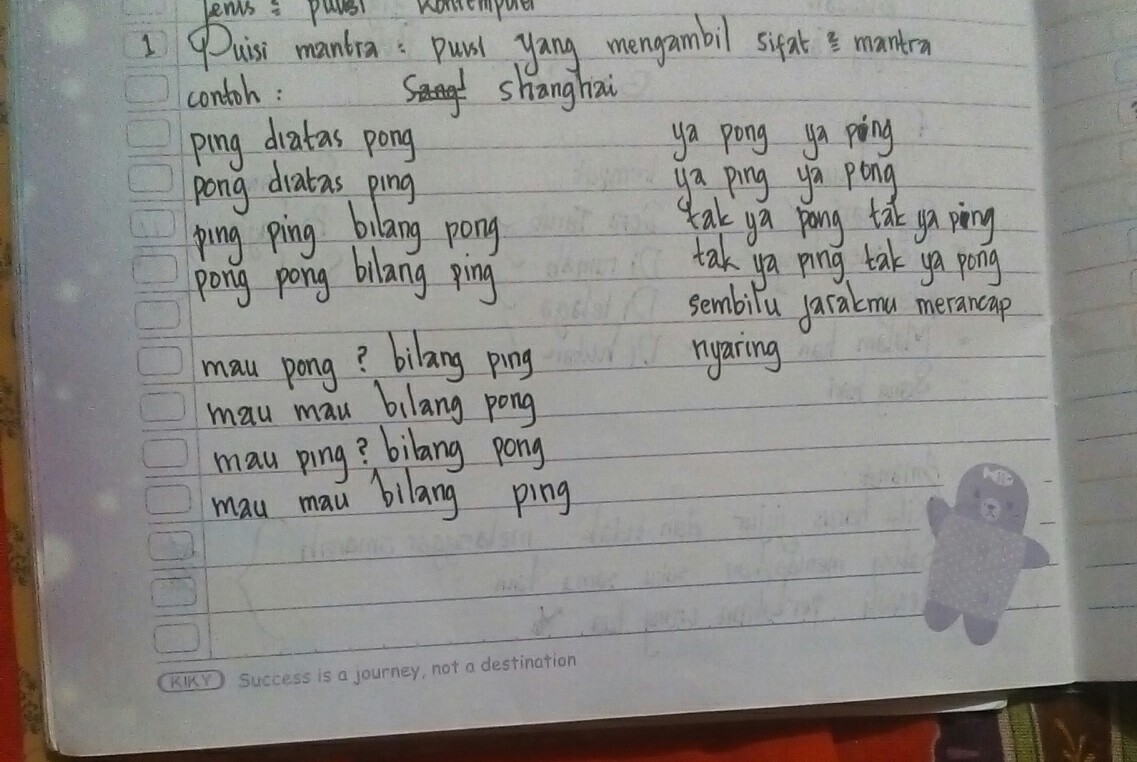 Jenis = puisi kontemporer
1 Puisi mantra : puisi yang mengambil sifat2 mantra
contoh : Sangt shanghai
ping diatas pong
pong diatas ping
ping ping bilang pong
pong pong bilang ping
mau pong ? bilang ping
mau mau bilang pong
mau ping ? bilang pong
mau mau bilang ping
ya pong ya ping
ya ping ya pong
tak ya pong tak ya ping
tak ya ping tak ya pong
sembilu jarakmu merancap
nyaring
KIKY Success is a journey, not a destination